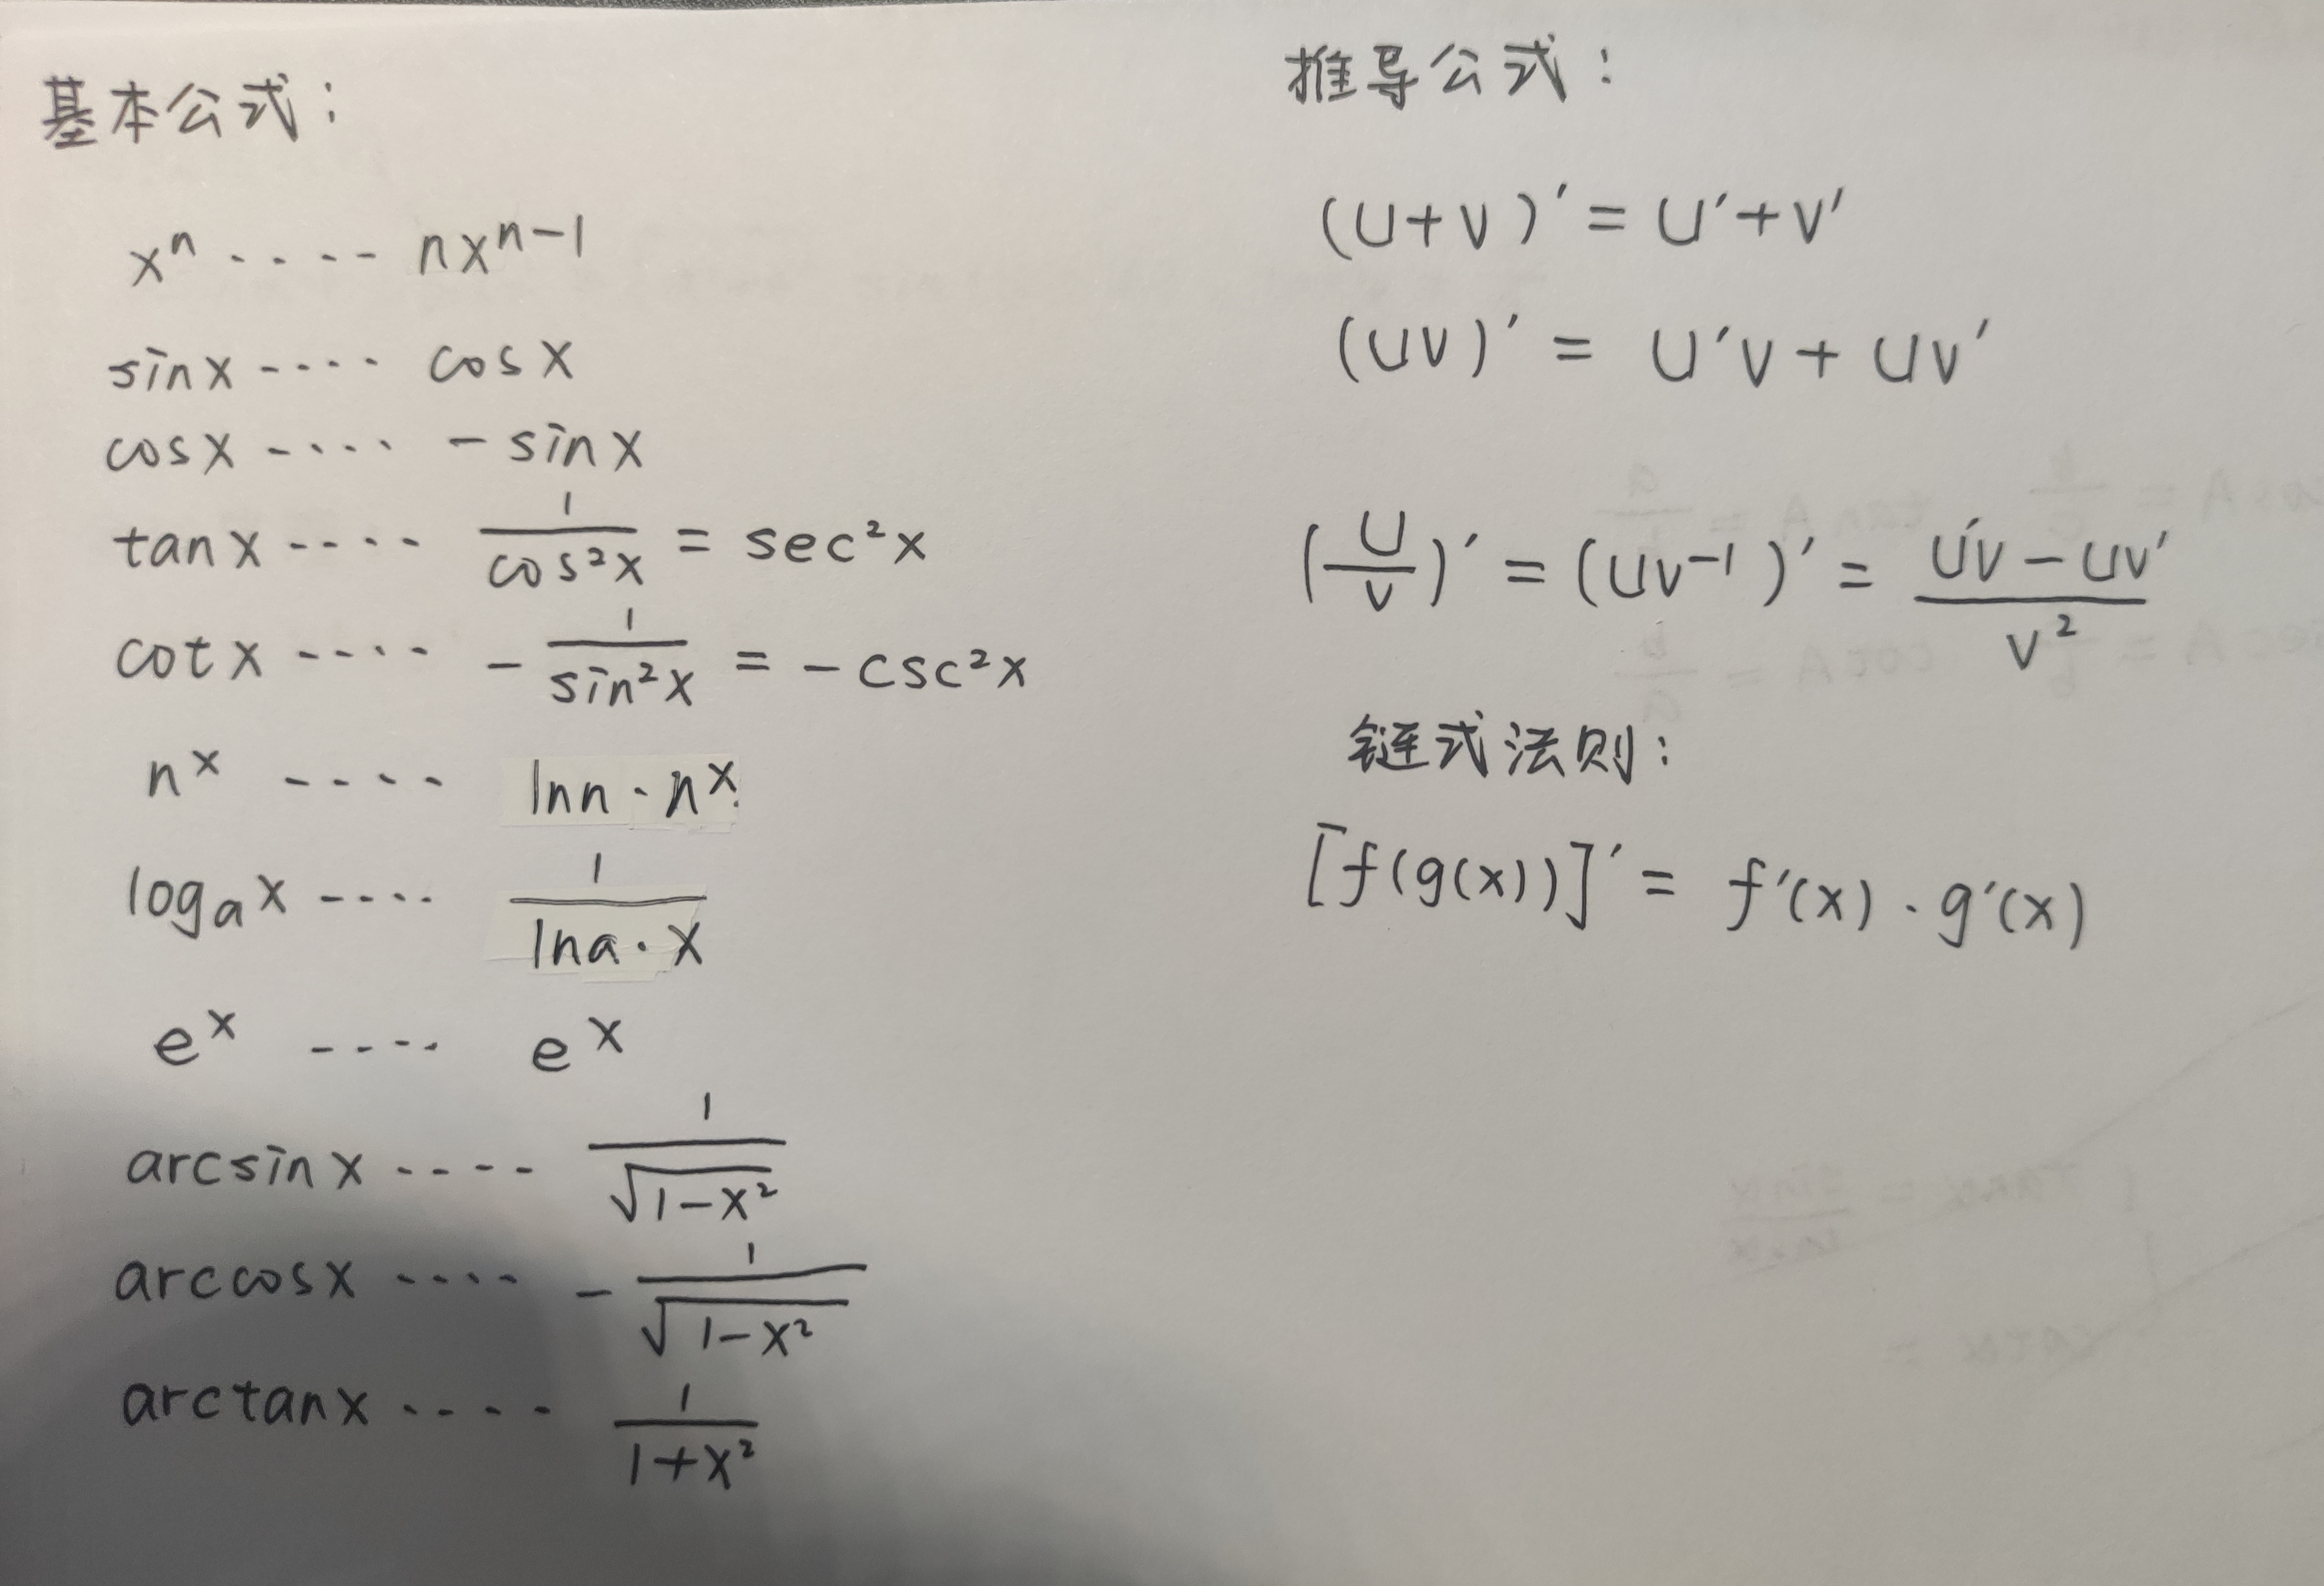 基本公式:
xⁿ ---- nxⁿ⁻¹
sinx ---- cosx
cosx ---- -sinx
tanx ---- 1/cos²x = sec²x
cotx ---- -1/sin²x = -csc²x
nˣ ---- lnn·nˣ
logₐx ---- 1/lna·x
eˣ ---- eˣ
arcsinx ---- 1/√1-x²
arccosx ---- -1/√1-x²
arctanx ---- 1/1+x²
推导公式:
(u+v)′ = u′+v′
(uv)′ = u′v+uv′
(u/v)′ = (uv⁻¹)′ = u′v-uv′/v²
链式法则:
[f(g(x))]′ = f′(x)·g′(x)